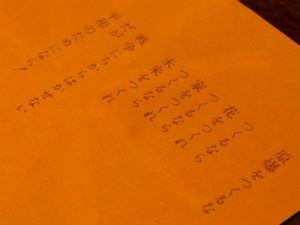 原爆をつくるな
つくるなら
花をつくれ
つくるなら
家をつくれ
つくるなら
未来をつくれ
戦争にちからはかせない
だが
平和のためになら